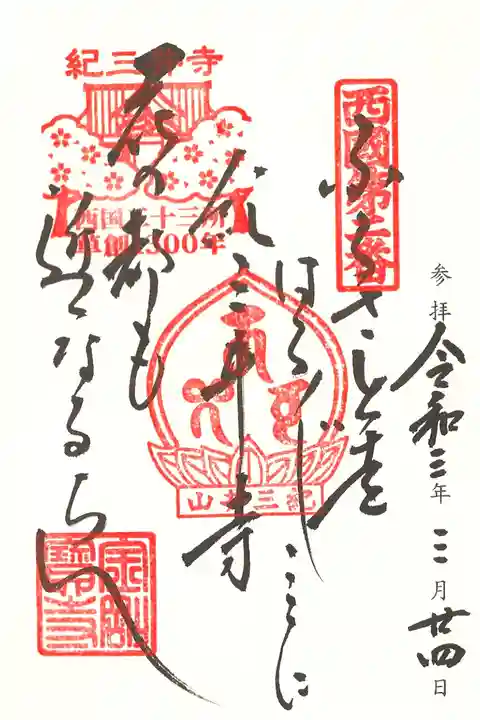 参拝 令和三年三月廿四日
西國第二番
ふるさとを
はる〲ここに
紀三井寺
花の都も
近くなるらん
紀三井寺
西国三十三所
草創1300年
紀三井山
金剛
寶寺